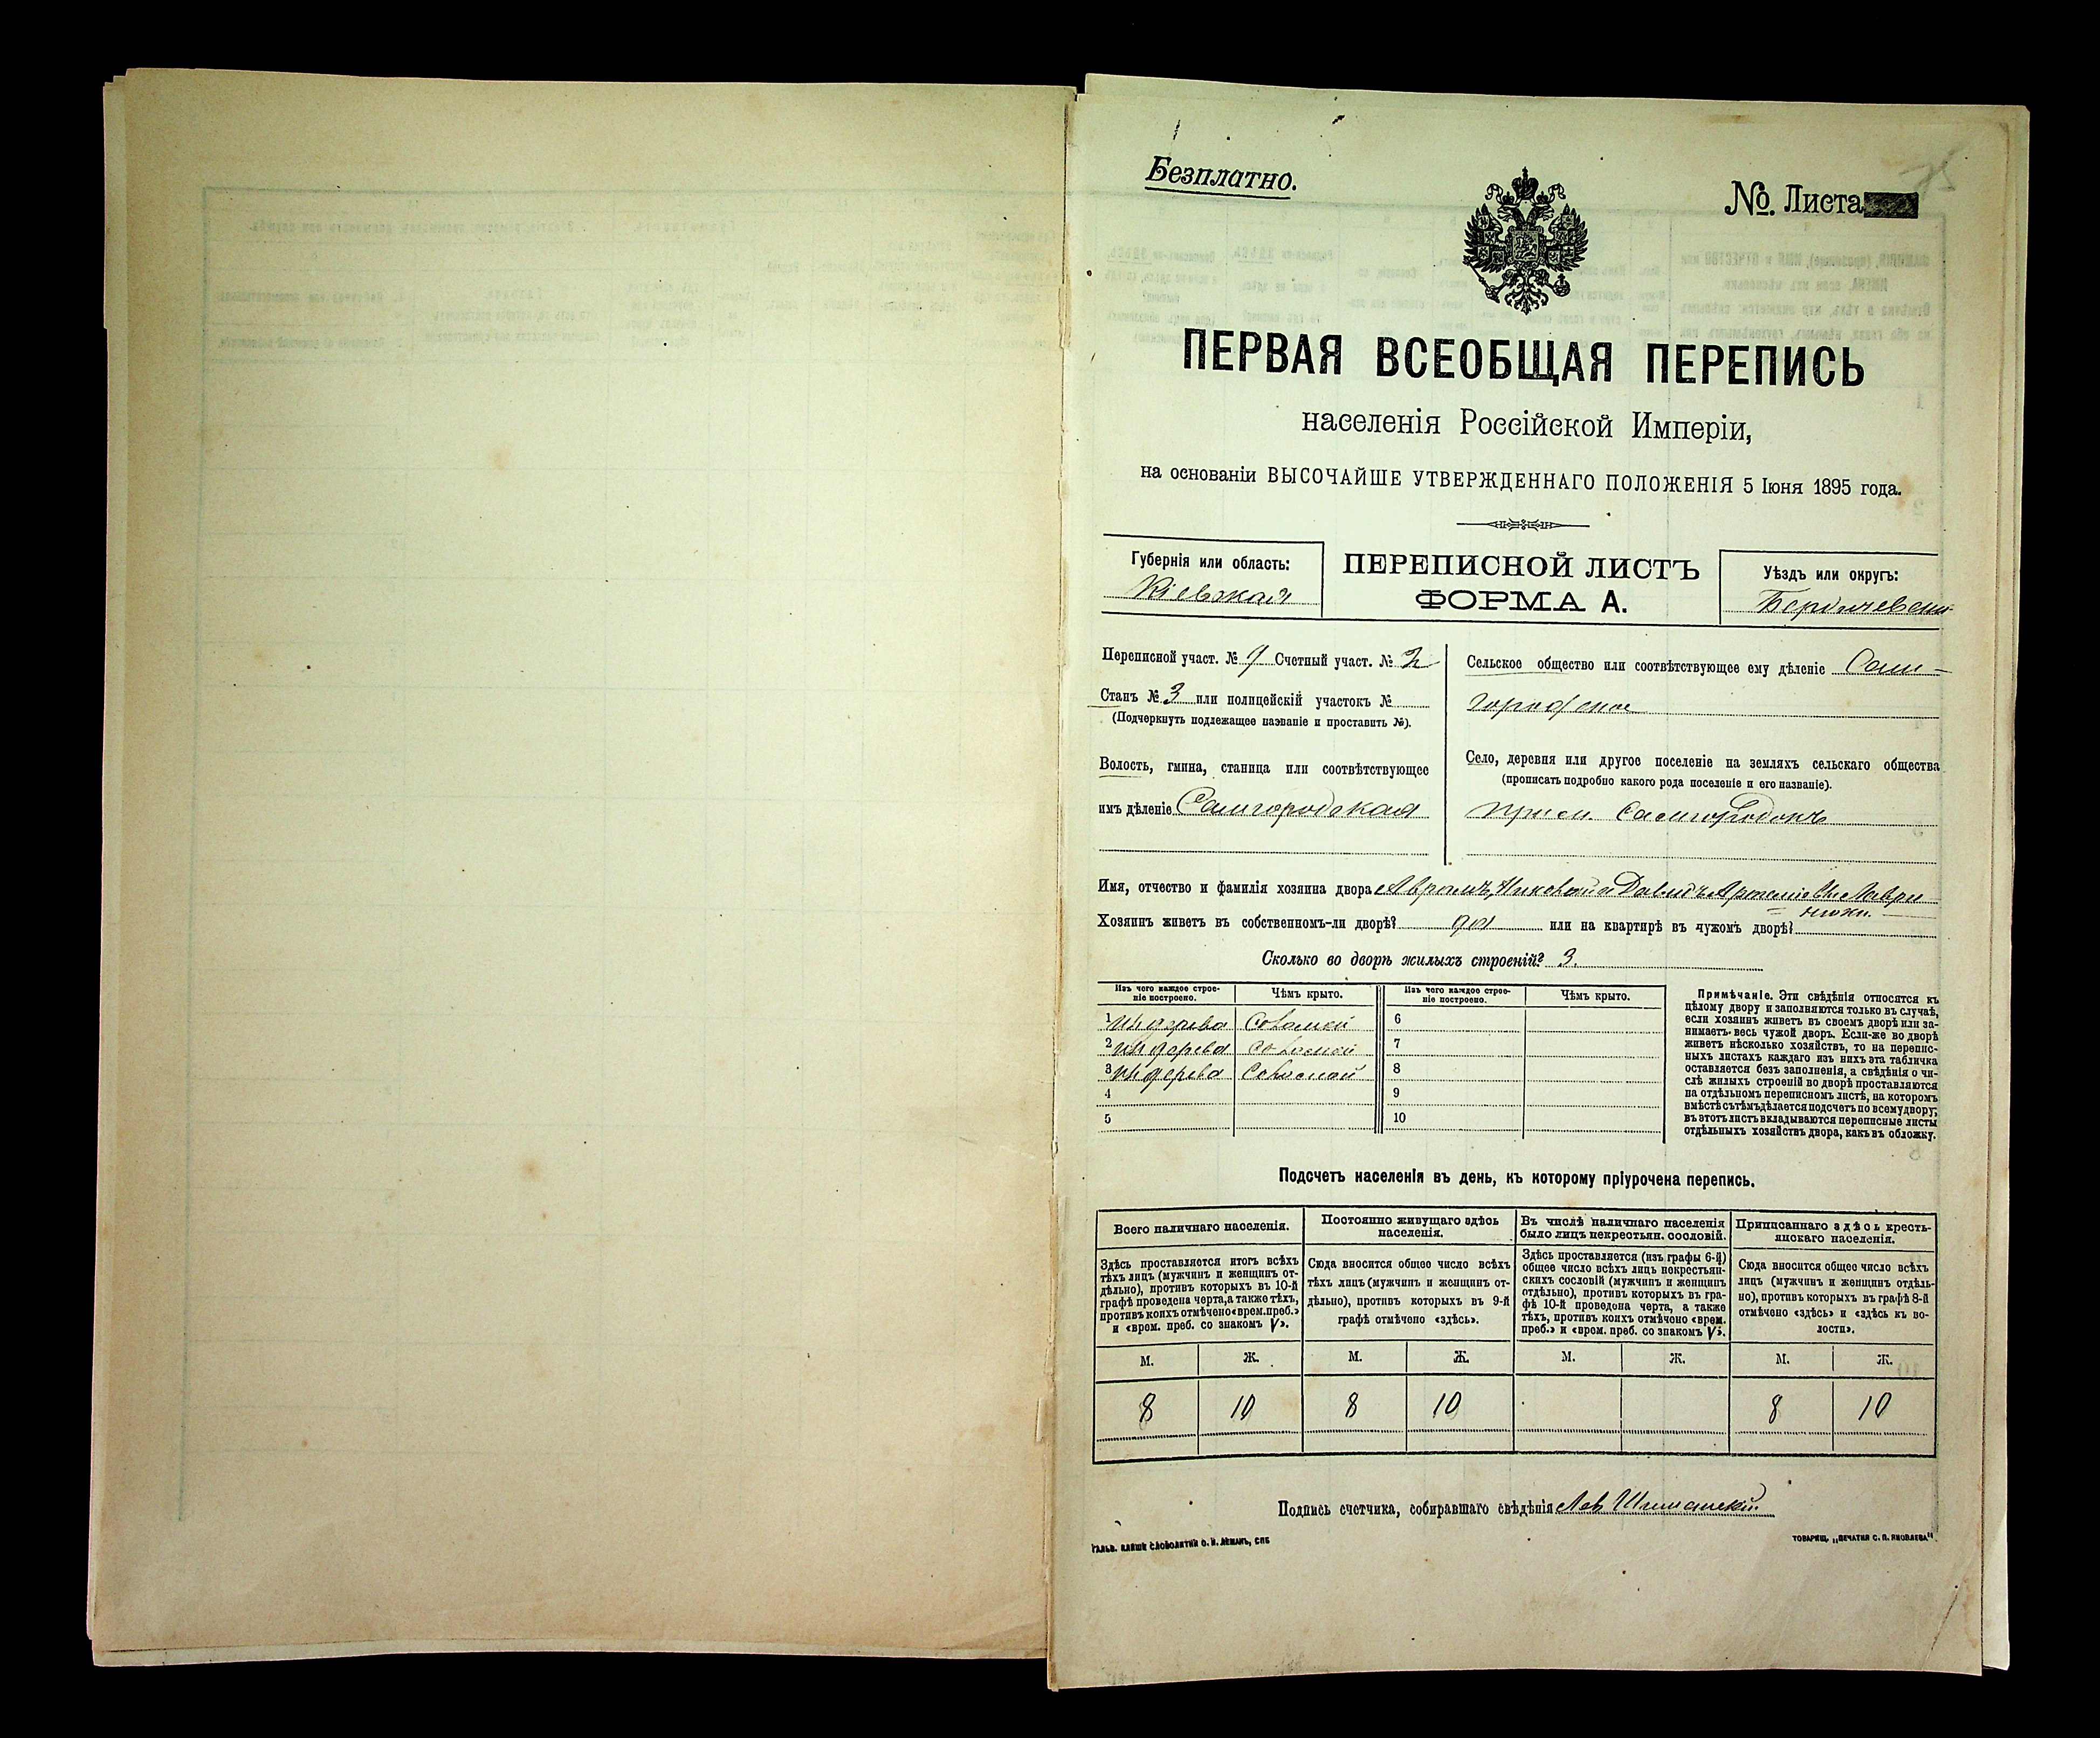 Безплатно.
№. Листа
ПЕРВАЯ ВСЕОБЩАЯ ПЕРЕПИСЬ
населенія Россійской Имперіи,
на основаніи ВЫСОЧАЙШЕ УТВЕРЖДЕННАГО ПОЛОЖЕНІЯ 5 Іюня 1895 года.
Губернія или область:
Кіевская
ПЕРЕПИСНОЙ ЛИСТЪ
ФОРМА А.
Уѣздъ или округъ:
Бердичевскій
Переписной участ. № 9 Счетный участ. № 2
Станъ № 3 или полицейскій участокъ №
(Подчеркнуть подлежащее названіе и проставить №).
Волость, гмина, станица или соотвѣтствующее
имъ дѣленіе Самгородская
Сельское общество или соотвѣтствующее ему дѣленіе Сам-
городское
Село, деревня или другое поселеніе на земляхъ сельскаго общества
(прописать подробно какого рода поселеніе и его названіе).
при м. Самгородокъ
Имя, отчество и фамилія хозяина двора Аврамъ, Николай и Давидъ Лаври
нюки.
Хозяинъ живетъ въ собственномъ-ли дворѣ? да или на квартирѣ въ чужомъ дворѣ?
Сколько во дворѣ жилыхъ строеній? 3.
Изъ чего каждое строе-
ніе построено.
Чѣмъ крыто.
Изъ чего каждое строе-
ніе построено.
Чѣмъ крыто.
1 изъ дерева Соломой 6
2 изъ дерева Соломой 7
3 изъ дерева Соломой 8
4 9
5 10
Примѣчаніе. Эти свѣдѣнія относятся къ
цѣлому двору и заполняются только въ случаѣ,
если хозяинъ живетъ въ своемъ дворѣ или за-
нимаетъ весь чужой дворъ. Если-же во дворѣ
живетъ нѣсколько хозяйствъ, то на перепис-
ныхъ листахъ каждаго изъ нихъ эта табличка
оставляется безъ заполненія, а свѣдѣнія о чи-
слѣ жилыхъ строеній во дворѣ проставляются
на отдѣльномъ переписномъ листѣ, на которомъ
вмѣстѣ съ тѣмъ дѣлается подсчетъ по всему двору;
въ этотъ листъ вкладываются переписные листы
отдѣльныхъ хозяйствъ двора, какъ въ обложку.
Подсчетъ населенія въ день, къ которому пріурочена перепись.
Всего наличнаго населенія.
Здѣсь проставляется итогъ всѣхъ
тѣхъ лицъ (мужчинъ и женщинъ от-
дѣльно), противъ которыхъ въ 10-й
графѣ проведена черта, а также тѣхъ,
противъ коихъ отмѣчено «врем. преб.»
и «врем. преб. со знакомъ V».
Постоянно живущаго здѣсь
населенія.
Сюда вносится общее число всѣхъ
тѣхъ лицъ (мужчинъ и женщинъ от-
дѣльно), противъ которыхъ въ 9-й
графѣ отмѣчено «здѣсь».
Въ числѣ наличнаго населенія
было лицъ некрестьян. сословій.
Здѣсь проставляется (изъ графы 6-й)
общее число всѣхъ лицъ некрестьян-
скихъ сословій (мужчинъ и женщинъ
отдѣльно), противъ которыхъ въ гра-
фѣ 10-й проведена черта, а также
тѣхъ, противъ коихъ отмѣчено «врем.
преб.» и «врем. преб. со знакомъ V».
Приписаннаго здѣсь кресть-
янскаго населенія.
Сюда вносится общее число всѣхъ
лицъ (мужчинъ и женщинъ отдѣль-
но), противъ которыхъ въ графѣ 8-й
отмѣчено «здѣсь» и «здѣсь къ во-
лости».
М. Ж. М. Ж. М. Ж. М. Ж.
8 10 8 10 8 10
Подпись счетчика, собиравшаго свѣдѣнія Лев Шиманскій
ТОВАРИЩ. „ПЕЧАТНЯ С. П. ЯКОВЛЕВА"